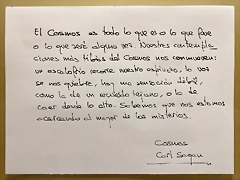 El Cosmos es todo lo que es o lo que fue
o lo que será alguna vez. Nuestras contempla-
ciones más tibias del Cosmos nos conmueven:
un escalofrío recorre nuestro espinazo, la voz
se nos quiebra, hay una sensación débil,
como la de un recuerdo lejano, o la de
caer desde lo alto. Sabemos que nos estamos
acercando al mayor de los misterios.
Cosmos
Carl Sagan